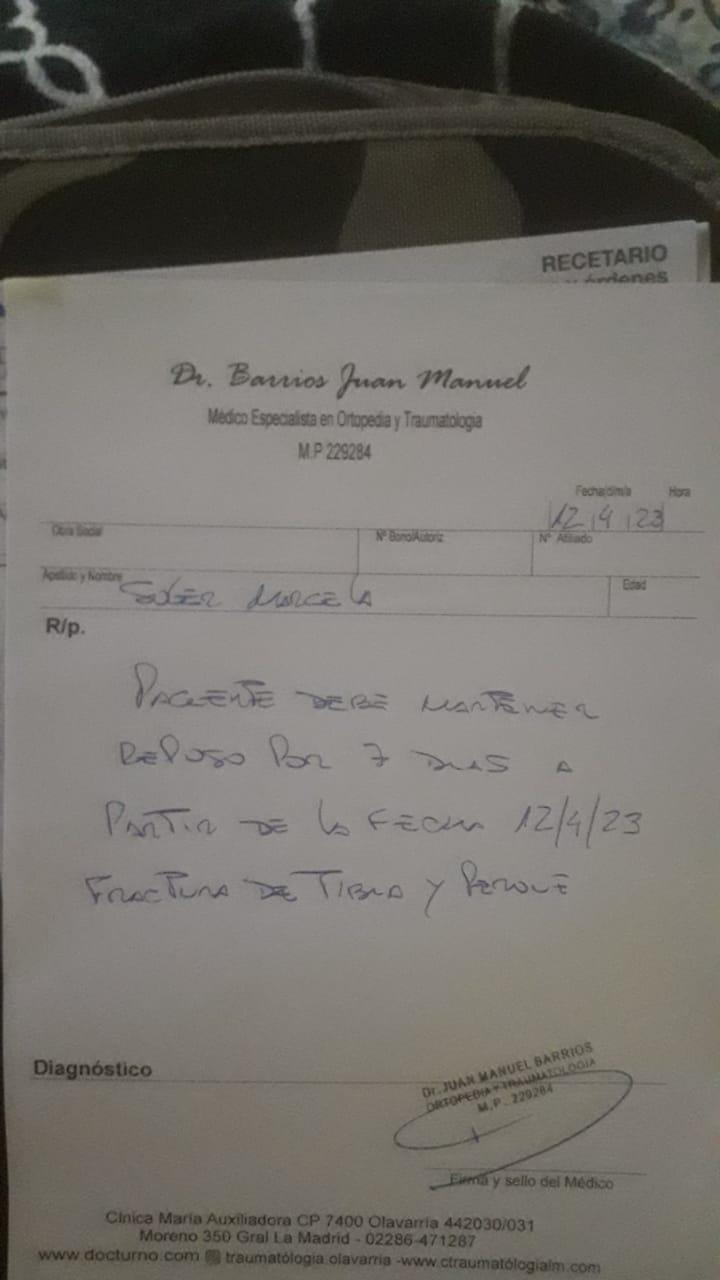 RECETARIO
y órdenes
Dr. Barrios Juan Manuel
Médico Especialista en Ortopedia y Traumatologia
M.P 229284
Fecha/d/m/a Hora
12 4 23
Obra Social Nº Bono/Autoriz. Nº Afiliado
Apellido y Nombre Marcela Edad
R/p.
PACIENTE DEBE MANTENER
REPOSO POR 7 DIAS A
PARTIR DE LA FECHA 12/4/23
FRACTURA DE TIBIA Y PERONÉ
Diagnóstico
Dr. JUAN MANUEL BARRIOS
ORTOPEDIA Y TRAUMATOLOGIA
M.P. 229284
Firma y sello del Médico
Clnica María Auxiliadora CP 7400 Olavarría 442030/031
Moreno 350 Gral La Madrid - 02286-471287
www.docturno.com traumatólogia.olavarria -www.ctraumatólogialm.com